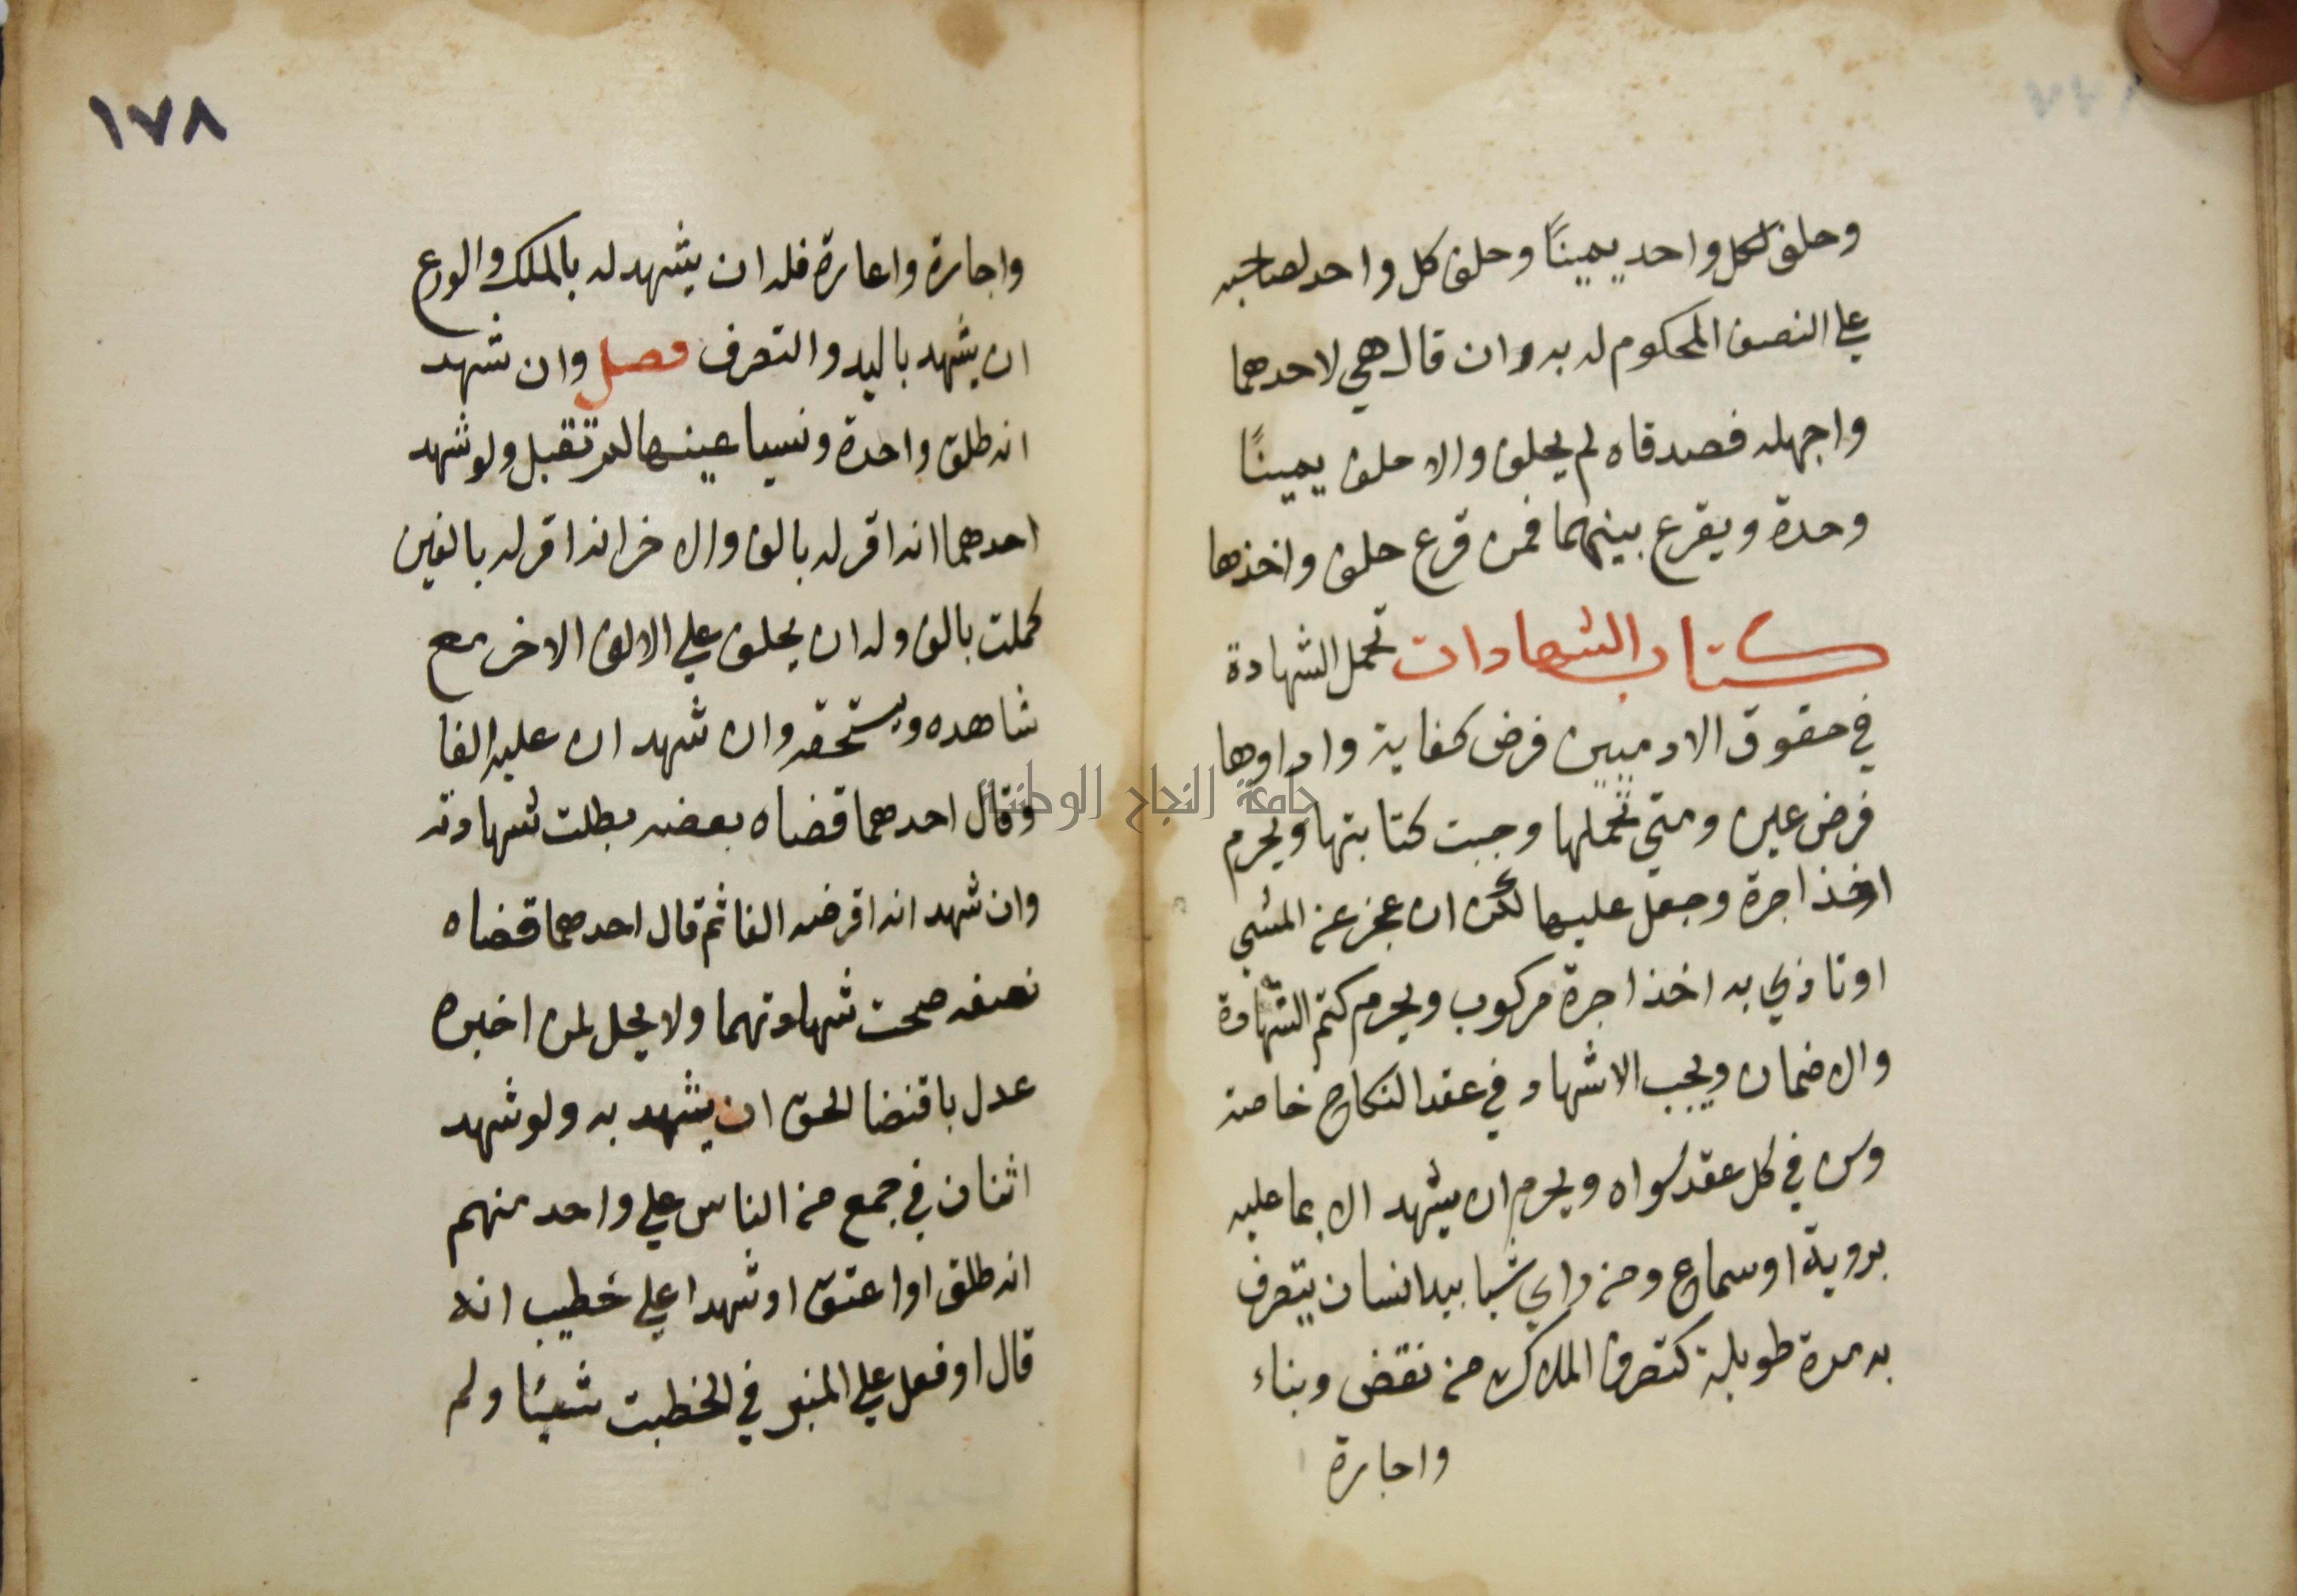 وحلف لكل واحد يمينًا وحلف كل واحد لصاحبه
علي النصف المحكوم له به وان قال هي لاحدهما
واجهله فصدقاه لم يحلف والا حلف يمينًا
وحدة ويقرع بينهما فمن قرع حلف واخذها
كتاب الشهادات تحمل الشهادة
في حقوق الادميين فرض كفاية واداوها
فرض عين ومتي تحملها وجبت كتابتها ويحرم
اخذ اجرة وجعل عليها لكن ان عجز عن المشي
اوتاذي به اخذ اجرة مركوب ويحرم كتم الشهادة
والا ضمان ويجب الاشهاد في عقد النكاح خاصة
وسن في كل عقد سواه ويحرم ان يشهد الا بما عليه
بروية او سماع ومن راي شيا بيد انسان يتصرف
به مدة طويلة كتصرف الملاك من نقض وبناء
واجارة
١٧٨
واجارة واعارة فله ان يشهد له بالملك والورع
ان يشهد باليد والتصرف فصل وان شهد
انه طلق واحدة ونسيا عينها لم تقبل ولو شهد
احدهما انه اقر له بالف والاخر انه اقر له بالفين
كملت بالف وله ان يحلف علي الالف الاخر مع
شاهده ويستحقه وان شهد ان عليه الفا
وقال احدهما قضاه بعضه بطلت شهادته
وان شهد انه اقرضه الفا ثم قال احدهما قضاه
نصفه صحت شهادتهما ولا يحل لمن اخبره
عدل باقتضا الحق ان يشهد به ولو شهد
اثنان في جمع من الناس علي واحد منهم
انه طلق او اعتق او شهدا علي خطيب انه
قال او فعل علي المنبر في الخطبت شيئا ولم
جامعة النجاح الوطنية